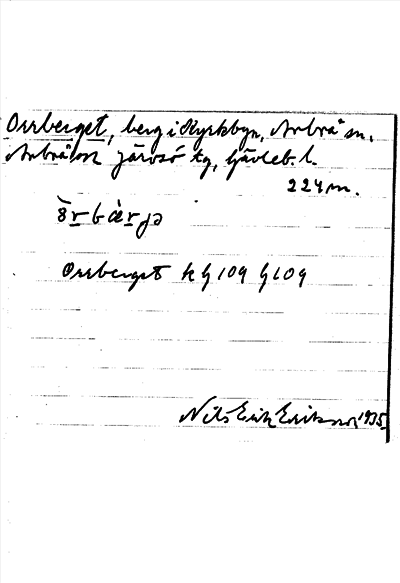 Orrberget, berg i Kyrkbyn, Arbrå sn,
Arbrå och Järvsö tg, Gävleb. l.
224 m.
òrbæ̀rjə
Orrberget k G 109 G 109
Nils Erik Eriksson 1935